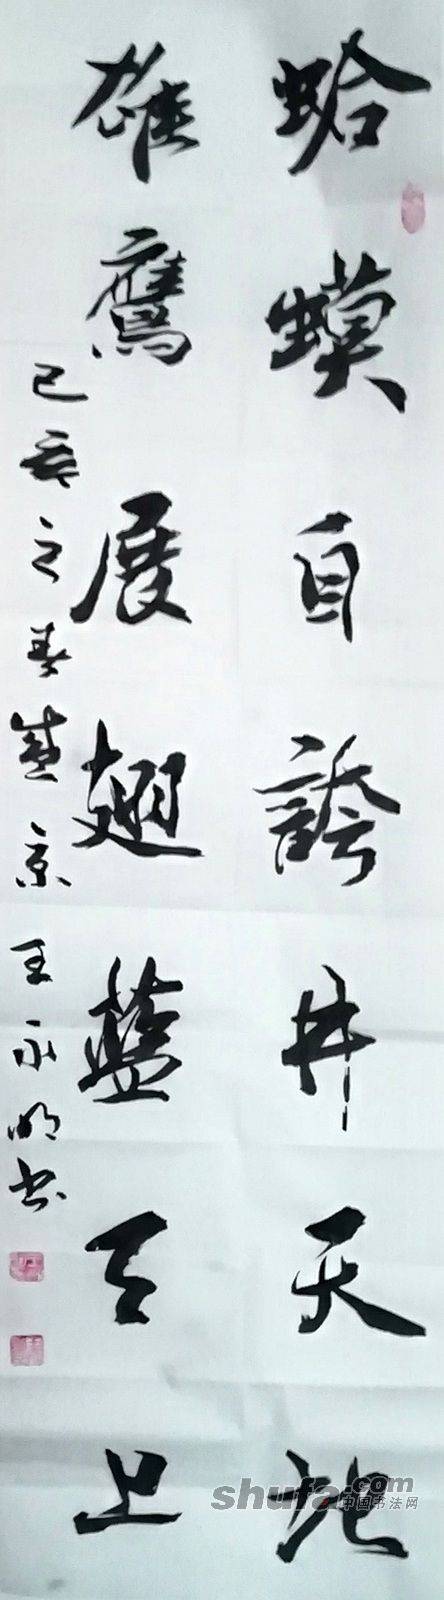 蛤蟆自誇井天地
雄鷹展翅藍天上
己亥之春燕京王永明书
shufa.com
中国书法网